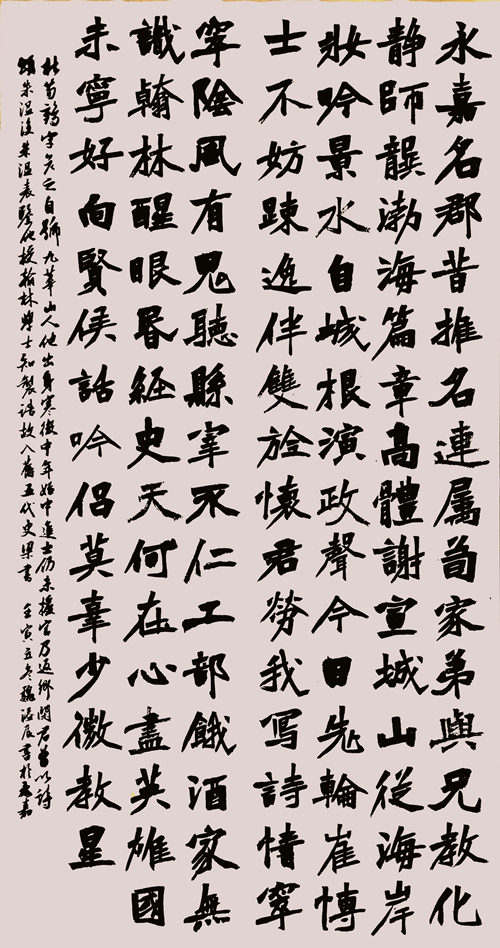 永嘉名郡昔推名連属荀家弟與兄教化
静師龔渤海篇章高體謝宣城山從海岸
妝吟景水自城根演政聲今日先輪崔博
士不妨踈逸伴雙於懷君勞我寫詩情窣
窣陰風有鬼聽縣宰不仁工部餓酒家無
識翰林醒眼昬經史天何在心盡英雄國
未寧好向賢侯話吟侶莫辜少微教星
杜荀鶴字彦之自號九華山人他出身寒後中年始中進士仍未授官乃返鄉閑居曾以詩
頌朱温後朱温表薦他授翰林學士知製誥故入舊五代史梁書 壬寅立冬魏辰書於永嘉